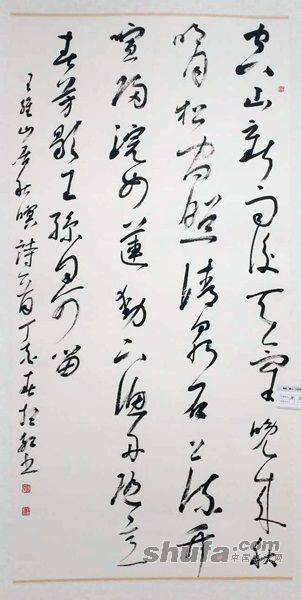 空山新雨後天氣晚來秋
明月松間照清泉石上流竹
喧歸浣女蓮動下漁舟隨意
春芳歇王孫自可留
王維山居秋暝詩一首丁亥春書
shufa.com
中国书法网